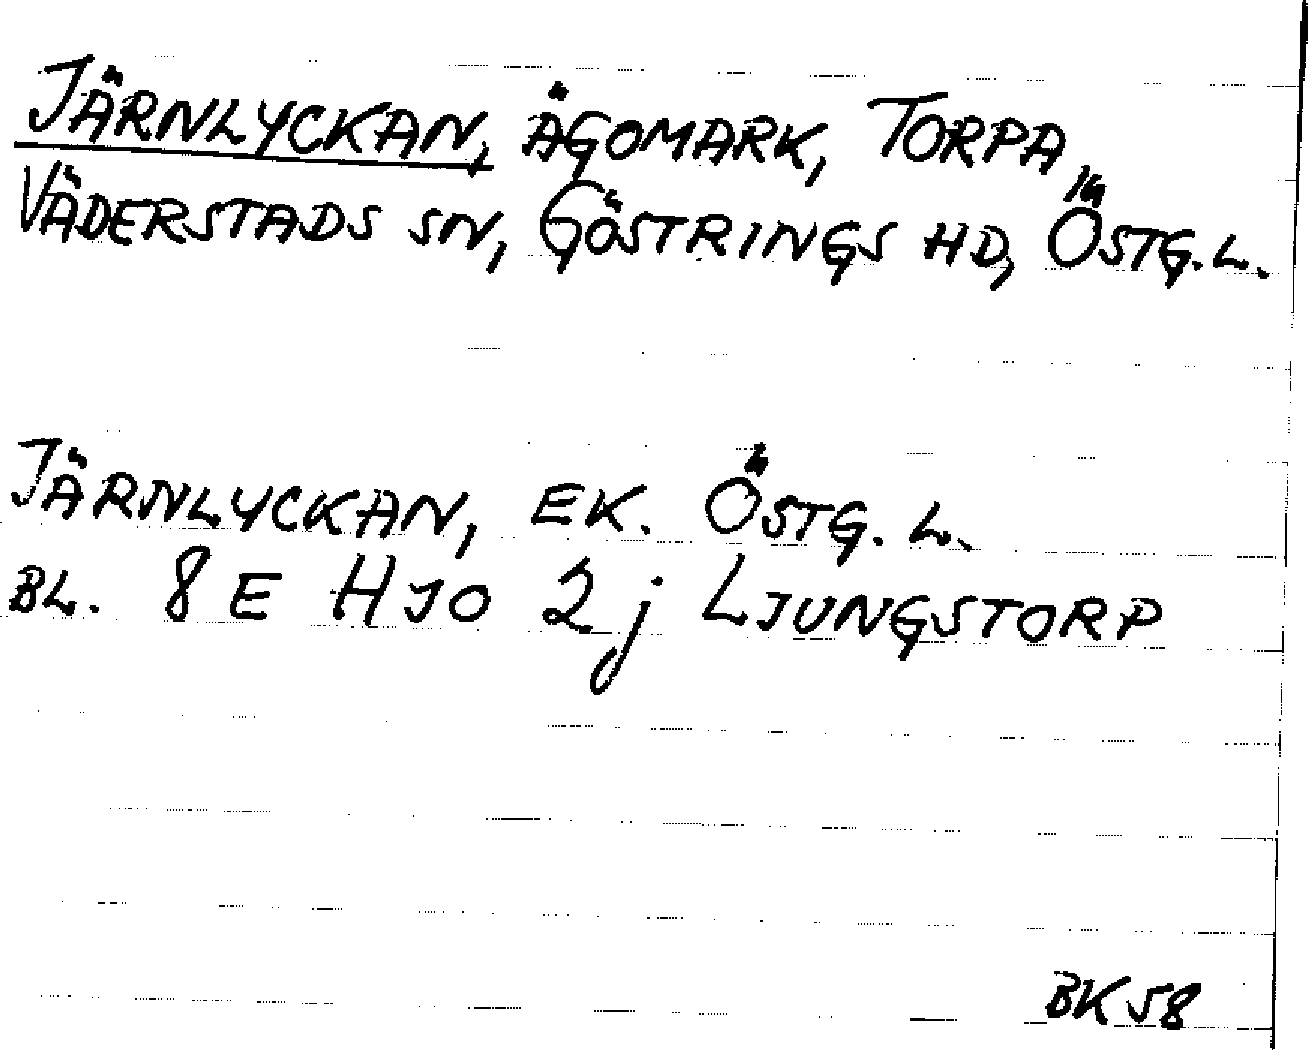 JÄRNLYCKAN, ÄGOMARK, TORPA,
VÄDERSTADS SN, GÖSTRINGS HD, ÖSTG. L.
JÄRNLYCKAN, EK. ÖSTG. L.
BL. 8 E HJO 2j LJUNGSTORP
BK 58